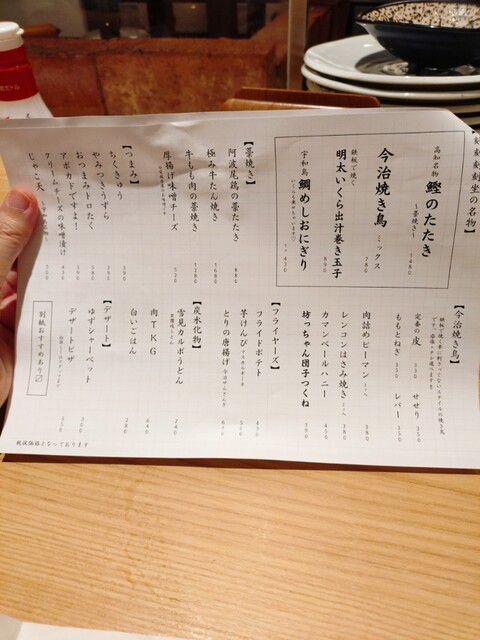 高知名物
鰹のたたき
～藁焼き～
1480
今治焼き鳥
ミックス
780
鉄板で焼く
明太いくら出汁巻き玉子
890
宇和島
鯛めしおにぎり
430
【藁焼き】
阿波尾鶏の藁たたき
880
極み牛たん焼き
1680
牛もも肉の藁焼き
1280
厚揚げ味噌チーズ
520
【つまみ】
ちくきゅう
390
やみつきうずら
390
おつまみトロたく
580
アボカドですよ!
580
クリームチーズの味噌漬け
430
じゃこ天
500
【今治焼き鳥】
定番の皮
350
せせり
350
ももとねぎ
350
レバー
350
肉詰めピーマン
380
レンコンはさみ焼き
380
カマンベールハニー
450
坊っちゃん団子つくね
390
【フライヤーズ】
フライドポテト
430
芋けんぴ
とりの唐揚げ
【炭水化物】
雪見カルボうどん
肉TKG
640
白いごはん
280
【デザート】
ゆずシャーベット
350
デザートピザ
500
別紙おすすめあり
税抜価格となっております